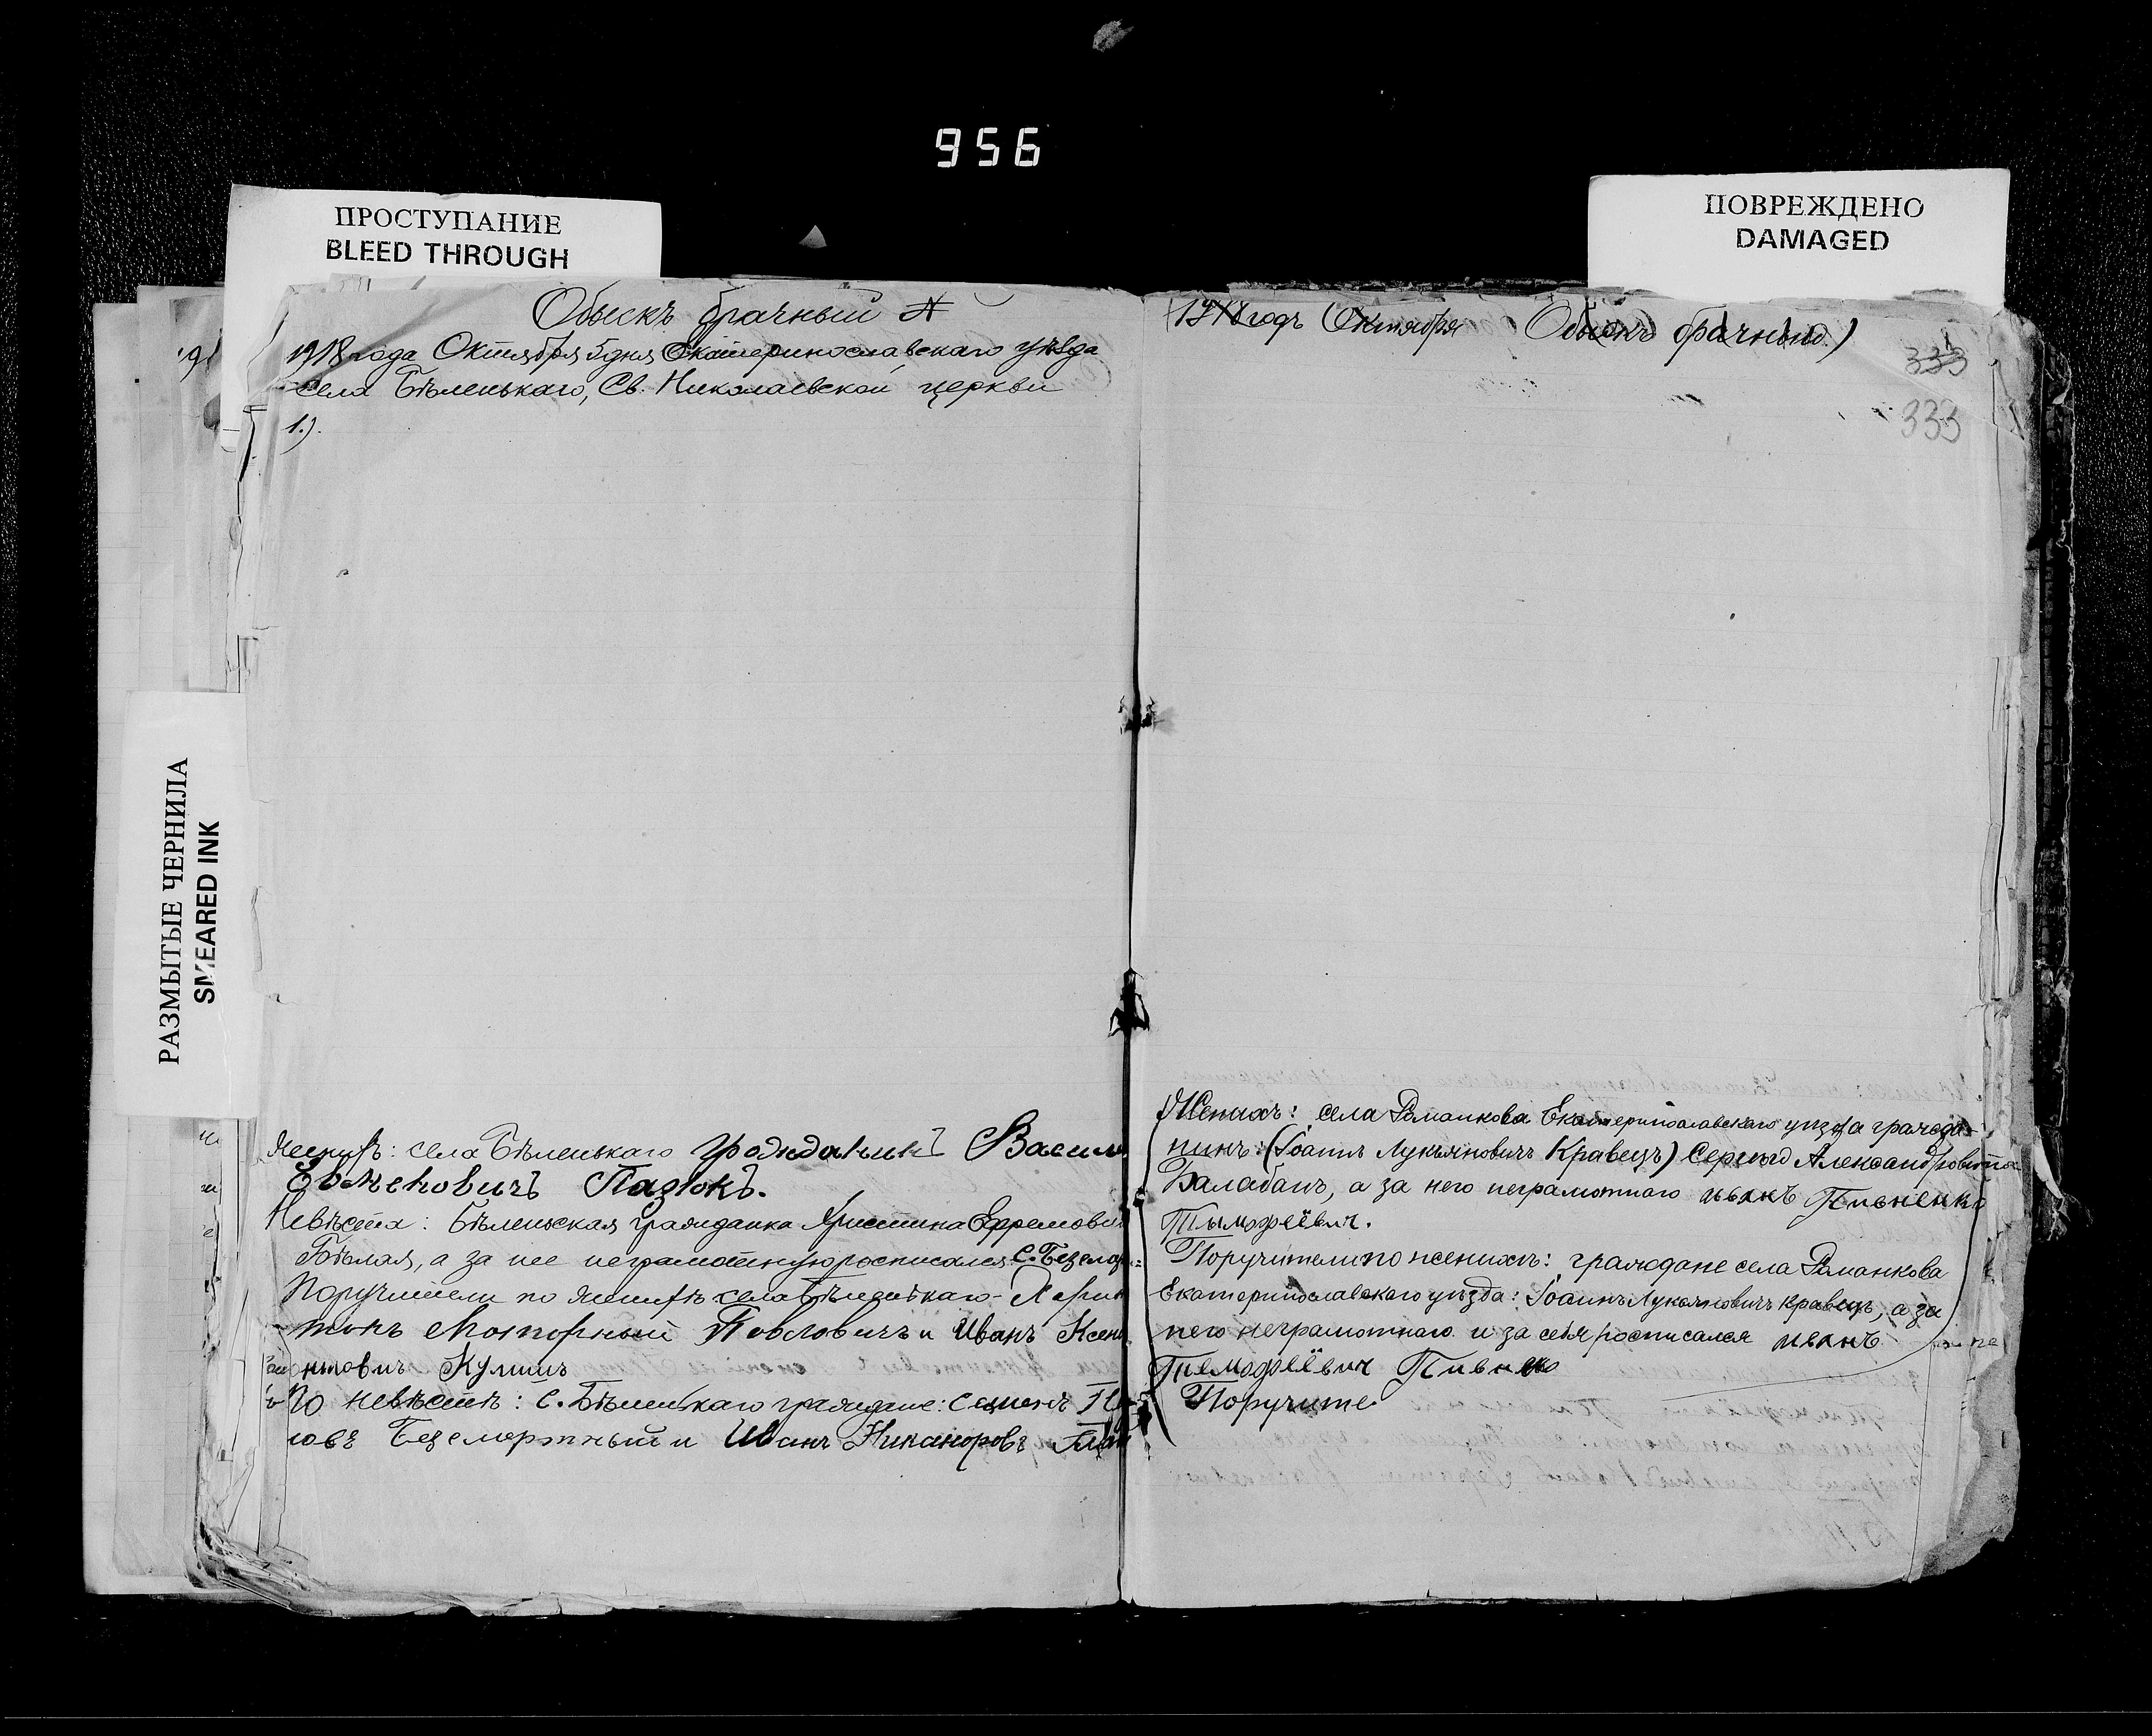 956
ПРОСТУПАНИЕ
BLEED THROUGH
ПОВРЕЖДЕНО
DAMAGED
РАЗМЫТЫЕ ЧЕРНИЛА
SMEARED INK
Обыскъ брачный №
1918 года Октября 5 дня Екатеринославскаго уѣзда
села Бѣленькаго, Св. Николаевской церкви
1.).
Женихъ: села Бѣленькаго Василь
Евсѣевичъ Пазюкъ.
Невѣста: Бѣленьская гражданка Христина Ефремовн
Бѣлая, а за нее неграмотную росписался С. Безсмер=
Поручители по женихѣ села Бѣленькаго - Хари
тонъ Моторный Повловичъ и Иванъ Ксен
Кулишъ
По невѣстѣ: с. Бѣленькаго граждане: Семенъ
ловъ Безсмертный и Иванъ Никаноровъ
1918 годъ Октября Обыскъ брачный)
333
333
Женихъ: села Романкова Екатеринославскаго уѣзда гражда-
нинъ: (Іоаннъ Лукьяновичъ Кравецъ) Сергій Александровичъ
Балабанъ, а за него неграмотнаго иванъ Пивненко
Тымофеёвич.
Поручители по женихѣ: граждане села Романкова
Екатеринославскаго уѣзда: Іоаннъ Лукьяновичъ Кравецъ, а за
него неграмотнаго и за себя росписался иванъ
Темофеёвич Пивнеко
Поручите